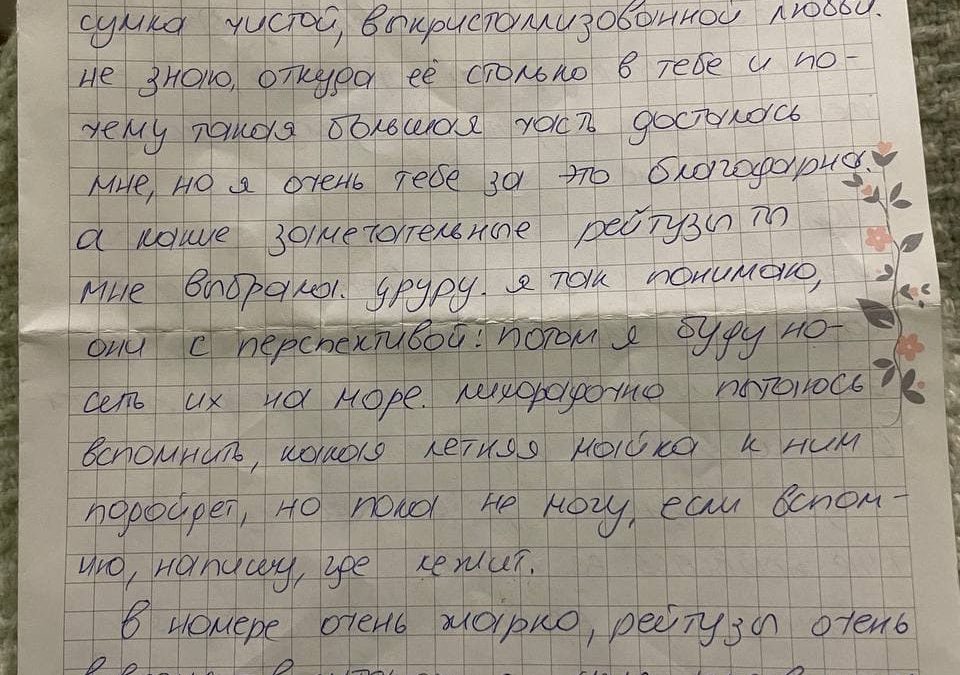 сумка чистой, выкристаллизованной любви.
не знаю, откуда её столько в тебе и по-
чему такая большая часть досталась
мне, но я очень тебе за это благодарна.
а какие замечательные рейтузы ты
мне выбрала. уруру. я так понимаю,
они с перспективой: потом я буду но-
сить их на море. лихорадочно пытаюсь
вспомнить, какая летняя майка к ним
подойдет, но пока не могу, если вспом-
ню, напишу, где лежит.
в номере очень жарко, рейтузы очень